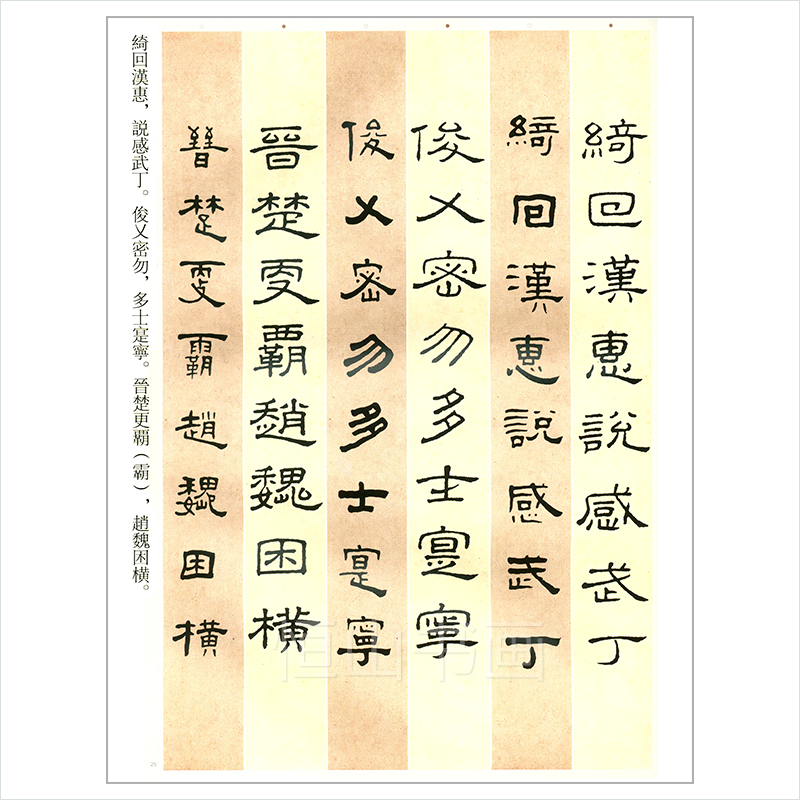 綺回漢惠說感武丁
綺回漢惠說感武丁
俊乂密勿多士寔寧
俊乂密勿多士寔寧
晉楚更覇趙魏困橫
晉楚更霸趙魏困橫
綺回漢惠，説感武丁。俊乂密勿，多士寔寧。晉楚更覇（霸），趙魏困橫。
恒山书画
25